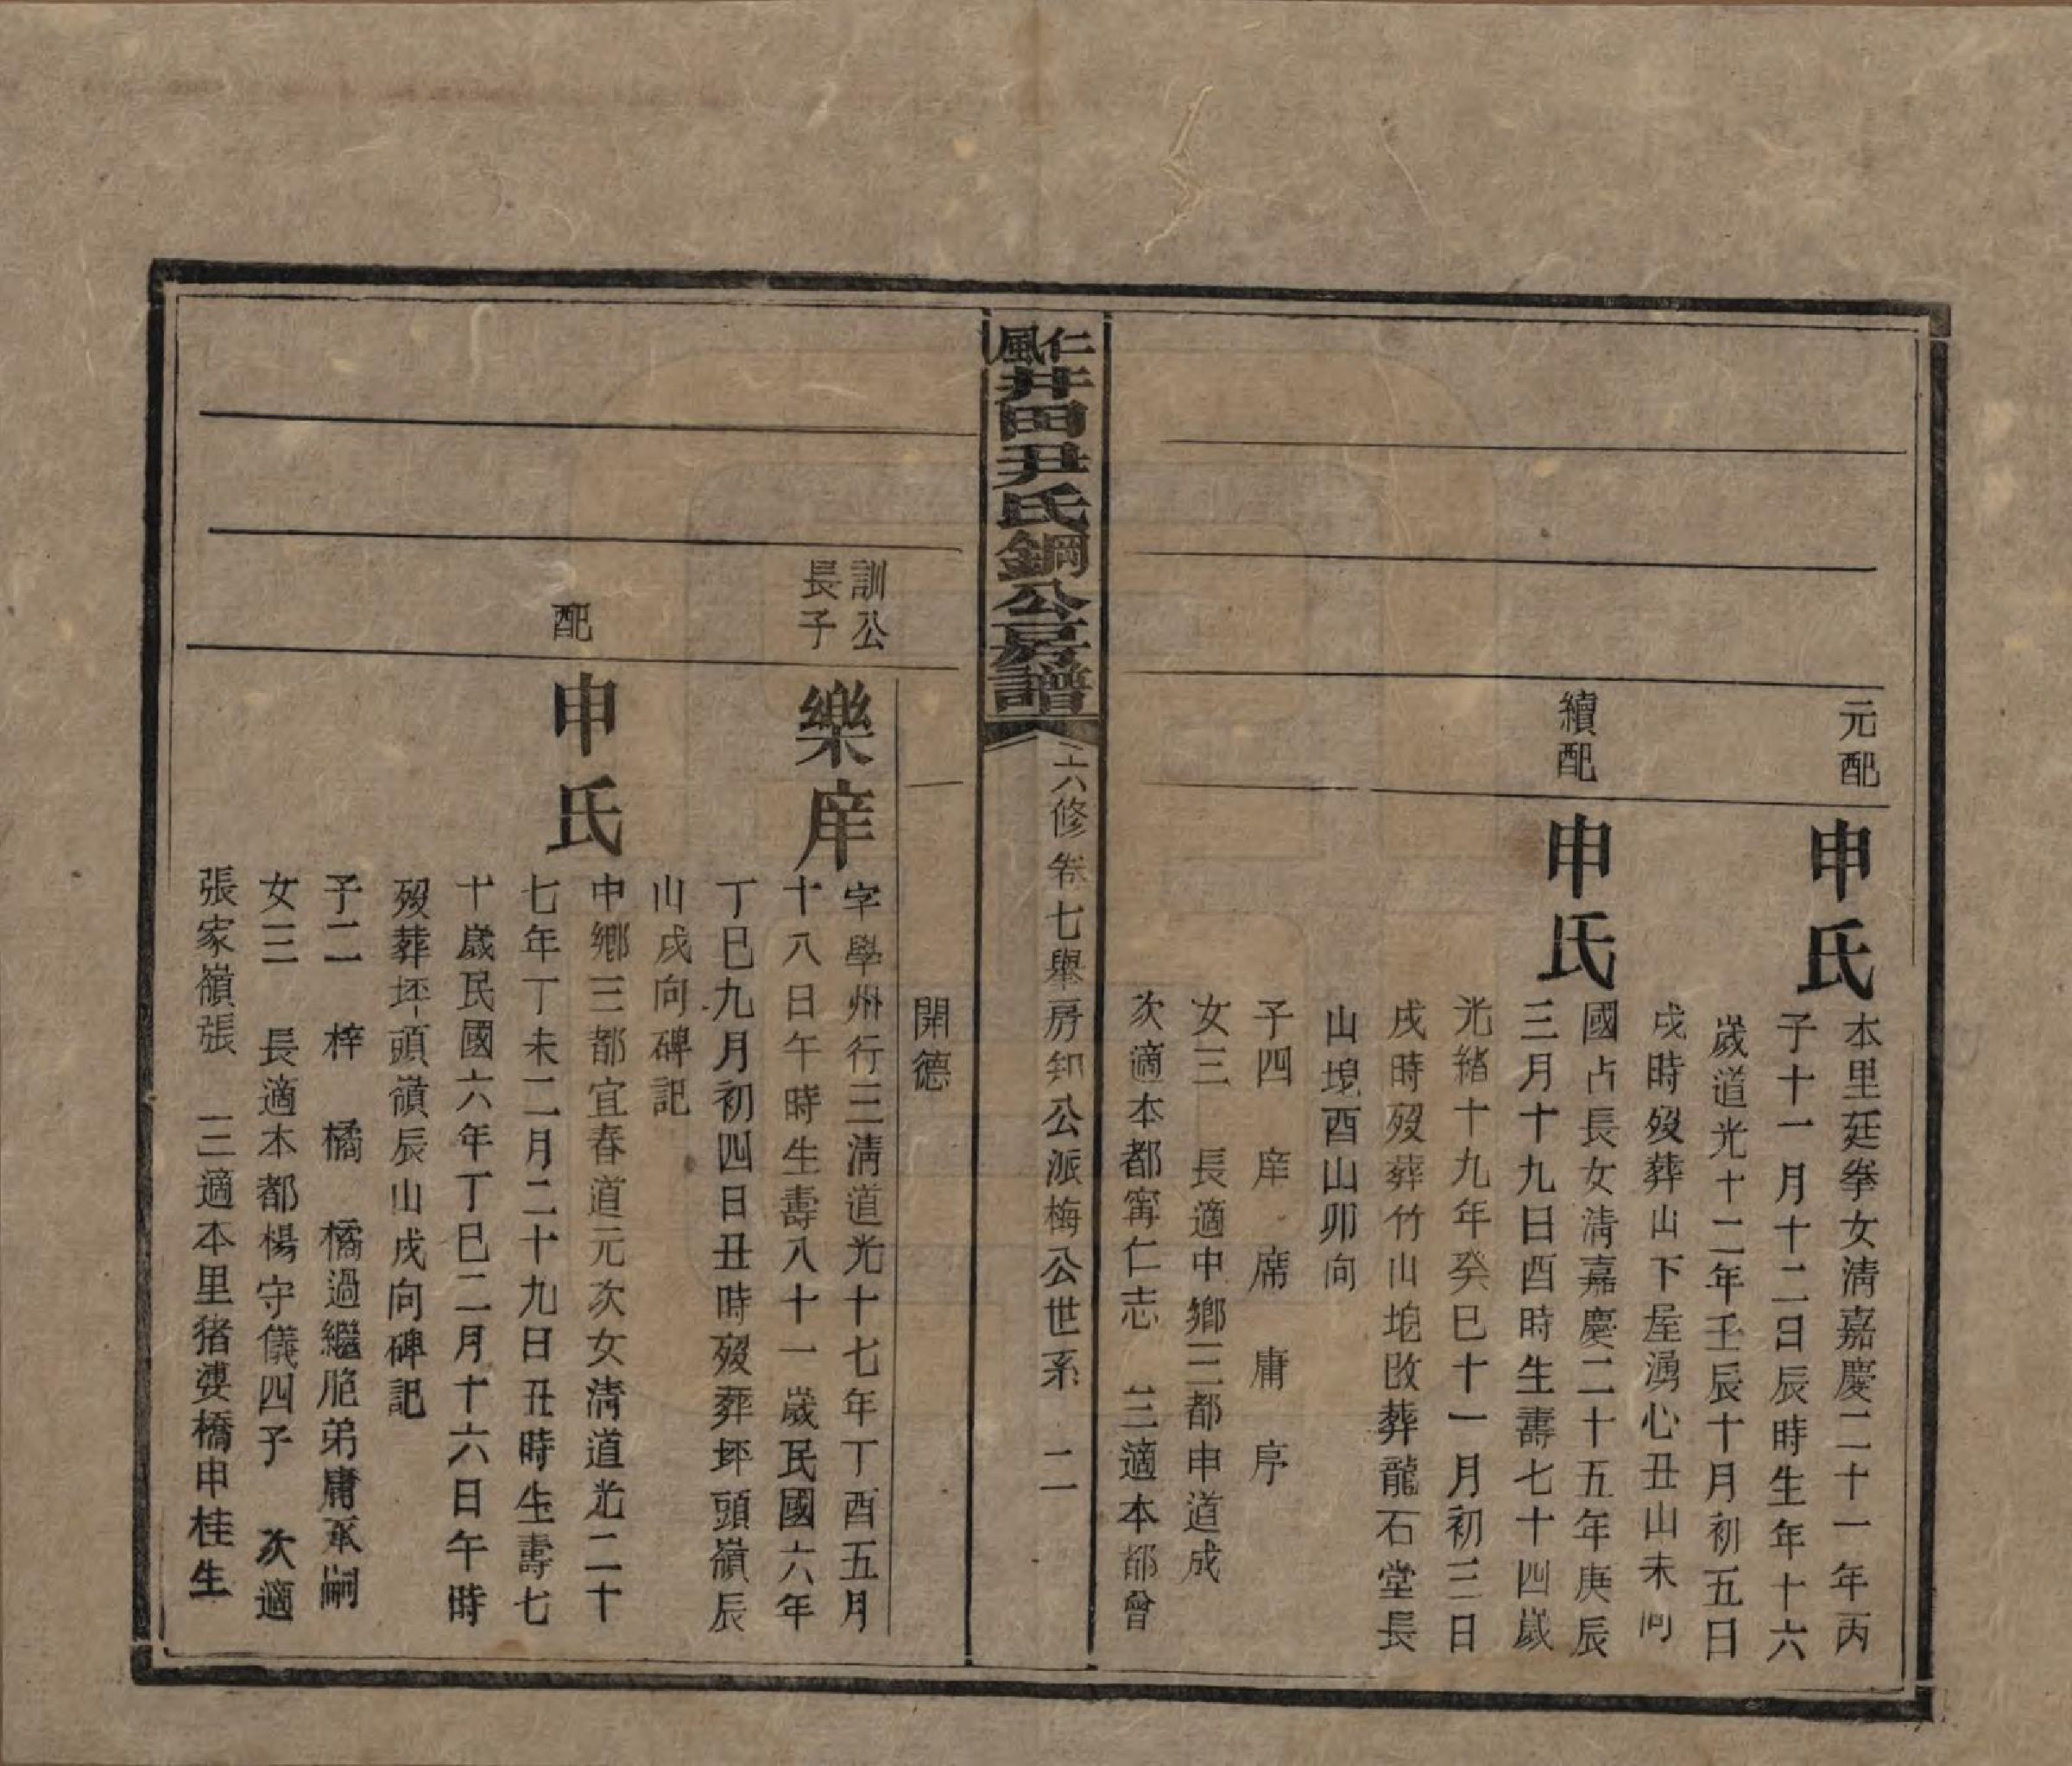 元配
申氏
本里廷拳女淸嘉慶二十一年丙
子十一月十二日辰時生年十六
歲道光十二年壬辰十月初五日
戌時歿葬山下屋湧心丑山未向
續配
申氏
國占長女淸嘉慶二十五年庚辰
三月十九日酉時生壽七十四歲
光緒十九年癸巳十一月初三日
戌時歿葬竹山垉改葬龍石堂長
山垉酉山卯向
子四 庠 席 庸 序
女三 長適中鄉三都申道成
次適本都甯仁志 三適本都曾
仁風井田尹氏鋼公房譜
六修卷七舉房知公派梅公世系 二
開德
訓公
長子
樂庠
字學州行三淸道光十七年丁酉五月
十八日午時生壽八十一歲民國六年
丁巳九月初四日丑時歿葬坯頭嶺辰
山戌向碑記
配
申氏
中鄉三都宜春道元次女淸道光二十
七年丁未二月二十九日丑時生壽七
十歲民國六年丁巳二月十六日午時
歿葬坯頭嶺辰山戌向碑記
子二 梓 橘 橘過繼胞弟庸承嗣
女三 長適本都楊守儀四子 次適
張家嶺張 三適本里猪婆橋申桂生